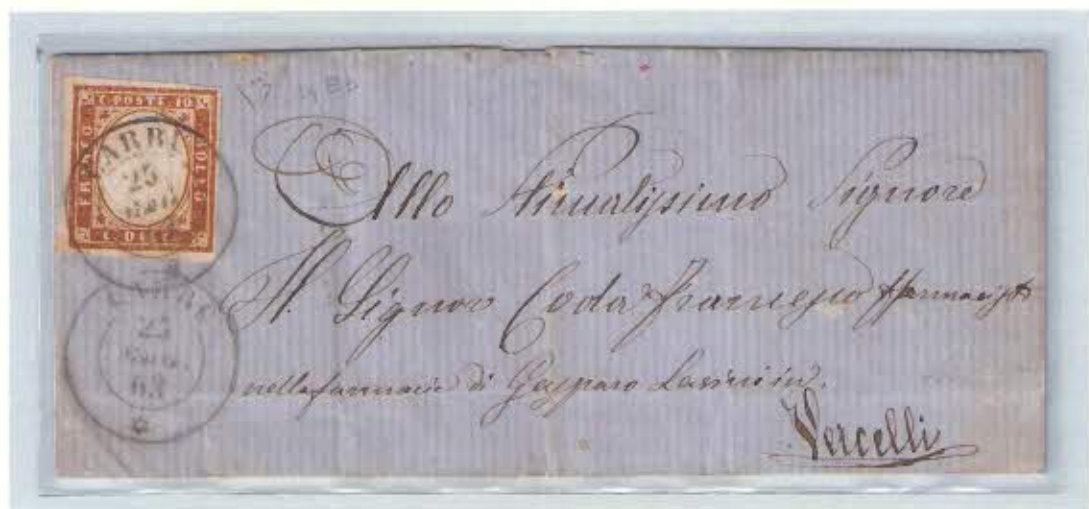 C. POSTE 10
FRANCO
BOLLO
C. DIECI
CARRU
25
CARRU
25
63
Allo Stimatissimo Signore
Il Signor Coda Francesco farmacista
nella farmacia di Gasparo in
Vercelli